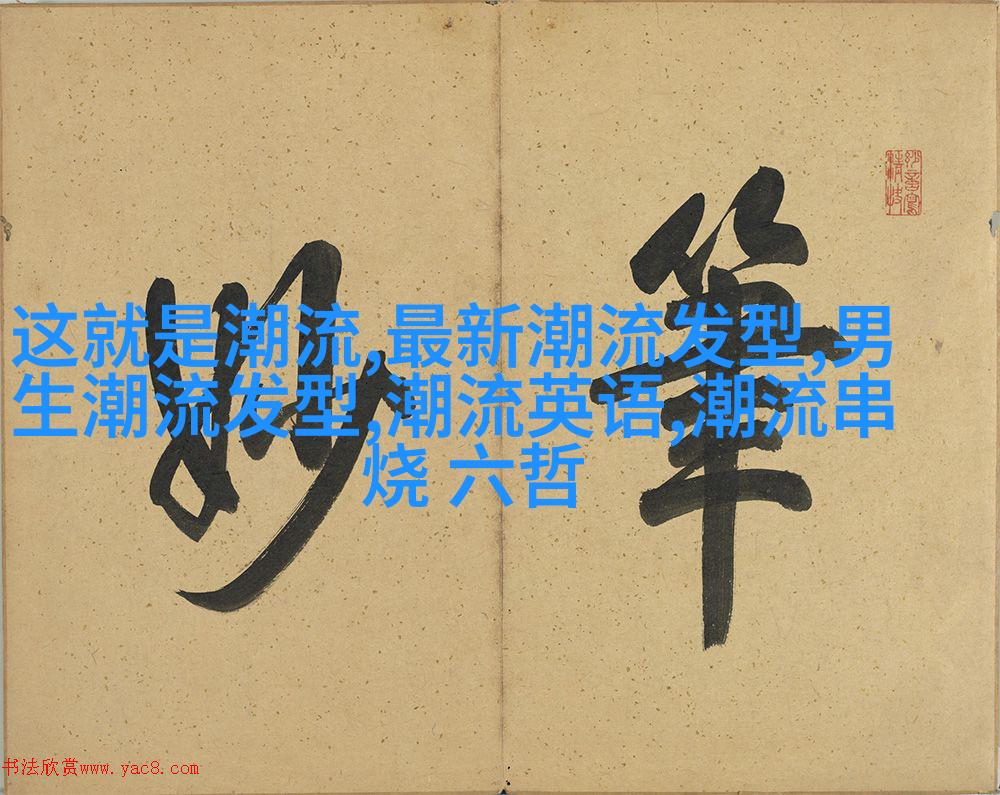 筆妙
这就是潮流,最新潮流发型,男
生潮流发型,潮流英语,潮流串
烧 六哲
书法欣赏www.yac8.com